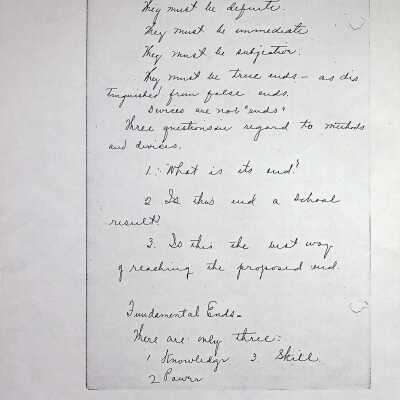 They must be definite.
They must be immediate
They must be subjective.
They must be true ends – as dis
tinguished from false ends.
Devices are not "ends"
Three questions in regard to methods
and devices.
1. What is its end?
2 Is this end a school
result?
3. Is this the best way
of reaching the proposed end.
Fundamental Ends –
There are only three:
1 Knowledge 3. Skill
2 Power